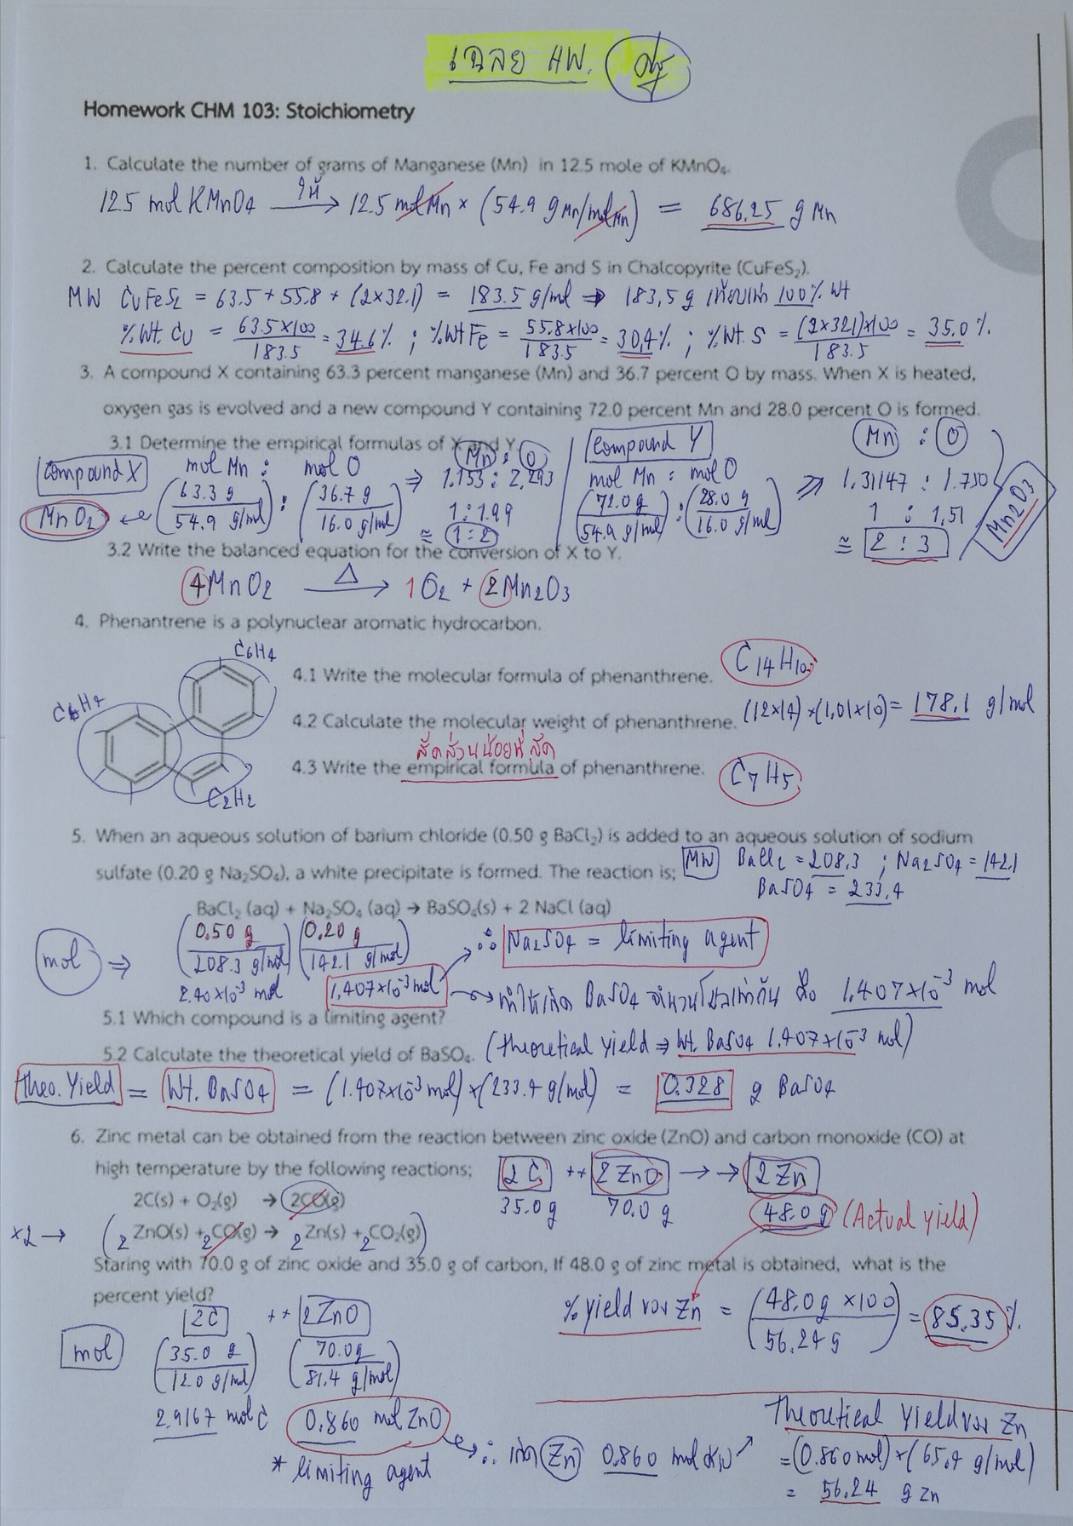 เฉลย HW.
Homework CHM 103: Stoichiometry
1. Calculate the number of grams of Manganese (Mn) in 12.5 mole of KMnO₄.
12.5 mol KMnO4 ให้→ 12.5 mol Mn × (54.9 g Mn/mol Mn) = 686.25 g Mn
2. Calculate the percent composition by mass of Cu, Fe and S in Chalcopyrite (CuFeS₂).
MW CuFeS2 = 63.5+55.8+(2×32.1) = 183.5 g/mol ⇒ 183.5 g เทียบเท่า 100% wt
%wt. Cu = 63.5×100/183.5 = 34.6% ; %wt Fe = 55.8×100/183.5 = 30.4% ; %wt. S = (2×32.1)×100/183.5 = 35.0%.
3. A compound X containing 63.3 percent manganese (Mn) and 36.7 percent O by mass. When X is heated,
oxygen gas is evolved and a new compound Y containing 72.0 percent Mn and 28.0 percent O is formed.
3.1 Determine the empirical formulas of X and Y.
Compound X mol Mn : mol O ⇒ Mn : O 1.153 : 2.293
MnO2 ← (63.3 g/54.9 g/mol) : (36.7 g/16.0 g/mol) 1 : 1.99 ≅ 1 : 2
Compound Y mol Mn : mol O Mn : O
(72.0 g/54.9 g/mol) : (28.0 g/16.0 g/mol) ⇒ 1.31147 : 1.750
1 : 1.51
≅ 2 : 3 Mn2O3
3.2 Write the balanced equation for the conversion of X to Y.
4MnO2 Δ→ 1O2 + 2Mn2O3
4. Phenantrene is a polynuclear aromatic hydrocarbon.
C6H4
C6H4
C2H2
4.1 Write the molecular formula of phenanthrene. C14H10
4.2 Calculate the molecular weight of phenanthrene. (12×14)+(1.01×10) = 178.1 g/mol
สัดส่วนน้อยที่สุด
4.3 Write the empirical formula of phenanthrene. C7H5
5. When an aqueous solution of barium chloride (0.50 g BaCl₂) is added to an aqueous solution of sodium
sulfate (0.20 g Na₂SO₄), a white precipitate is formed. The reaction is; MW BaCl2 = 208.3 ; Na2SO4 = 142.1
BaSO4 = 233.4
BaCl₂ (aq) + Na₂SO₄ (aq) → BaSO₄(s) + 2 NaCl (aq)
mol ⇒ (0.50 g/208.3 g/mol) (0.20 g/142.1 g/mol) ∴ Na2SO4 = limiting agent
2.40×10⁻³ mol 1.407×10⁻³ mol → ทำให้เกิด BaSO4 จำนวนโมลเท่ากัน คือ 1.407×10⁻³ mol
5.1 Which compound is a limiting agent?
5.2 Calculate the theoretical yield of BaSO₄. (theoretical yield ⇒ wt. BaSO4 1.407×10⁻³ mol)
theo. Yield = Wt. BaSO4 = (1.407×10⁻³ mol)×(233.4 g/mol) = 0.328 g BaSO4
6. Zinc metal can be obtained from the reaction between zinc oxide (ZnO) and carbon monoxide (CO) at
high temperature by the following reactions; 2C ++ 2ZnO →→ 2Zn
35.0 g 70.0 g 48.0 g (Actual yield)
2C(s) + O₂(g) → 2CO(g)
×2 → (2 ZnO(s) + 2 CO(g) → 2 Zn(s) + 2 CO₂(g))
Staring with 70.0 g of zinc oxide and 35.0 g of carbon, If 48.0 g of zinc metal is obtained, what is the
percent yield?
% yield ของ Zn = (48.0 g ×100/56.24 g) = 85.35 %.
2C ++ 2ZnO
mol (35.0 g/12.0 g/mol) (70.0 g/81.4 g/mol)
2.9167 mol C 0.860 mol ZnO
* limiting agent
∴ เกิด Zn 0.860 mol ด้วย
Theoretical Yield ของ Zn
= (0.860 mol)×(65.4 g/mol)
= 56.24 g Zn